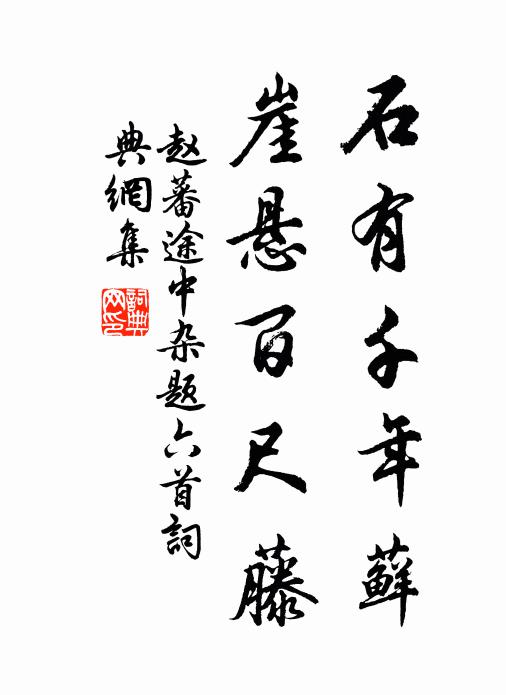 石有千年蘚
崖悬百尺藤
赵蕃途中杂题六首詞
典網集
詞典网印